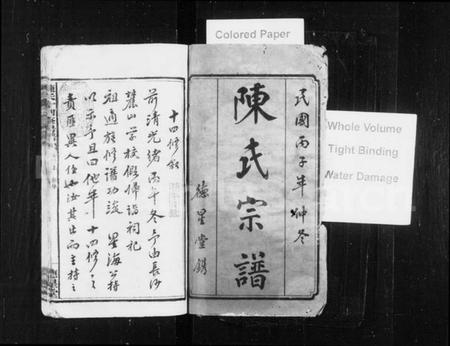 Colored Paper
Whole Volume
Tight Binding
Water Damage
民國丙子年仲冬
陳氏宗譜
德星堂鐫
十四修敘
前清光緒丙午冬予由長沙
麓山学校假歸詣祠祀
祖適族修譜功竣 星海公持
以示予且曰他年十四修之
責匪異人任如汝其出而主持之